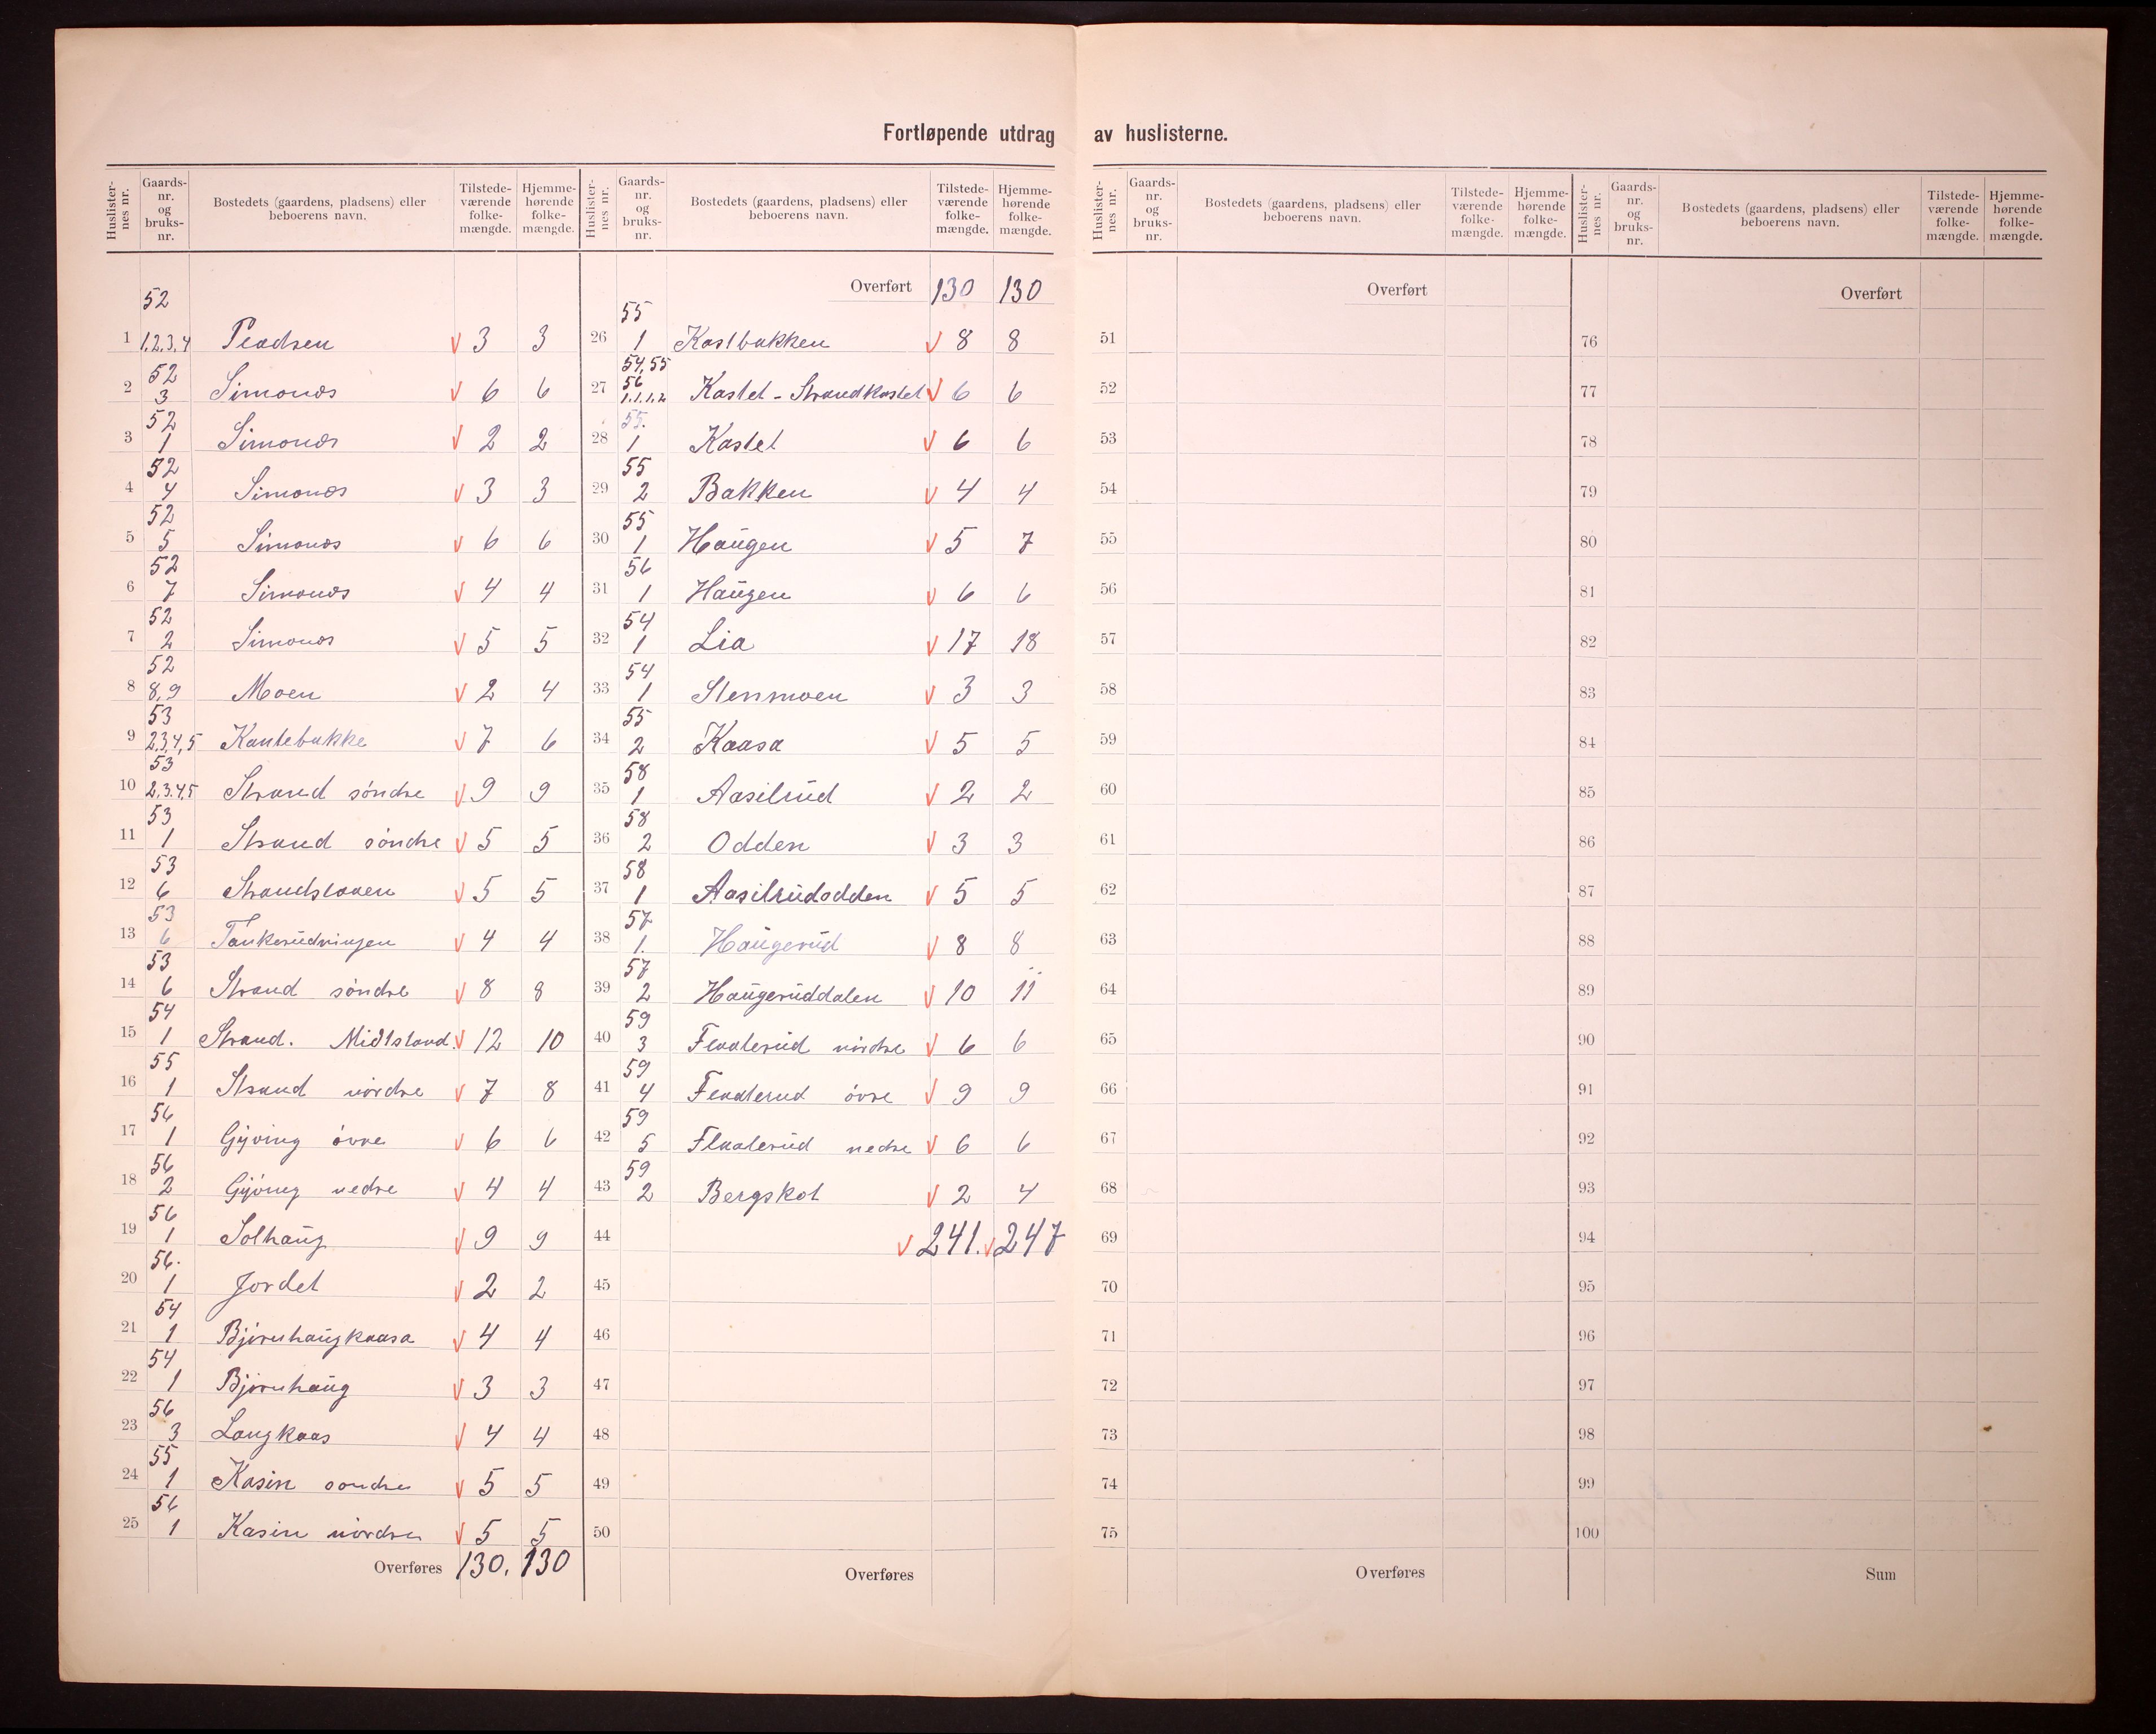 Fortløpende utdrag av huslisterne.
Huslister-nes nr. Gaards-nr. og bruks-nr. Bostedets (gaardens, pladsens) eller beboerens navn. Tilstede-værende folke-mængde. Hjemme-hørende folke-mængde.
1 52 1.2.3.4 3 3
2 52 3 Simonøs 6 6
3 52 1 Simonøs 2 2
4 52 4 Simonøs 3 3
5 52 5 Simonøs 6 6
6 52 7 Simonøs 4 4
7 52 2 Simonøs 5 5
8 52 8,9 Moen 2 4
9 53 2,3,4,5 Kantebakke 7 6
10 53 2.3.4.5 Strand söndre 9 9
11 53 1 Strand söndre 5 5
12 53 6 5 5
13 53 6 4 4
14 53 6 Strand söndre 8 8
15 54 1 Strand. 12 10
16 55 1 Strand nördre 7 8
17 56 1 Gjöving övre 6 6
18 56 2 nedre 4 4
19 56 1 Solhaug 9 9
20 56. 1 Jordet 2 2
21 54 1 Björnhaugkaasa 4 4
22 54 1 Björnhaug 3 3
23 56 3 Langkaas 4 4
24 55 1 Kasin søndre 5 5
25 56 1 Kasin nördre 5 5
Overføres 130. 130
Huslister-nes nr. Gaards-nr. og bruks-nr. Bostedets (gaardens, pladsens) eller beboerens navn. Tilstede-værende folke-mængde. Hjemme-hørende folke-mængde.
Overført 130 130
26 55 1 Kastbakken 8 8
27 54,55 56 1.1.1.2 Kastet - Strandkastet 6 6
28 55. 1 Kastet 6 6
29 55 2 Bakken 4 4
30 55 1 Haugen 5 7
31 56 1 Haugen 6 6
32 54 1 Lia 17 18
33 54 1 Stensmoen 3 3
34 55 2 Kaasa 5 5
35 58 1 Aasilrud 2 2
36 58 2 Odden 3 3
37 58 1 Aasilrudodden 5 5
38 57 1. Haugerud 8 8
39 57 2 Haugeruddalen 10 11
40 59 3 Flaaterud nördre 6 6
41 59 4 Flaaterud övre 9 9
42 59 5 Flaaterud nedre 6 6
43 59 2 Bergskot 2 4
44 241. 247
45
46
47
48
49
50
Overføres
Huslister-nes nr. Gaards-nr. og bruks-nr. Bostedets (gaardens, pladsens) eller beboerens navn. Tilstede-værende folke-mængde. Hjemme-hørende folke-mængde.
Overført
51
52
53
54
55
56
57
58
59
60
61
62
63
64
65
66
67
68
69
70
71
72
73
74
75
Overføres
Huslister-nes nr. Gaards-nr. og bruks-nr. Bostedets (gaardens, pladsens) eller beboerens navn. Tilstede-værende folke-mængde. Hjemme-hørende folke-mængde.
Overført
76
77
78
79
80
81
82
83
84
85
86
87
88
89
90
91
92
93
94
95
96
97
98
99
100
Sum